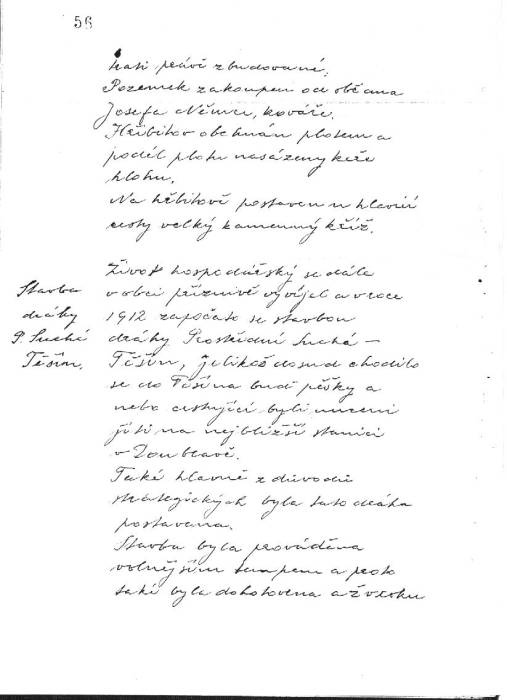 56
trati právě zbudované.
Pozemek zakoupen od občana
Josefa Němce, kováře.
Hřbitov obehnán plotem a
podél plotu nasázeny keře
hlohu.
Na hřbitově postaven u hlavní
cesty velký kamenný kříž.
Stavba
dráhy
P. Suchá
Těšín.
Život hospodářský se dále
v obci příznivě vyvíjel a v roce
1912 započato se stavbou
dráhy Prostřední Suchá –
Těšín, jelikož dosud chodilo
se do Těšína buď pěšky a
nebo cestující byli nuceni
jíti na nejbližší stanici
v Doubravě.
Také hlavně z důvodů
strategických byla tato dráha
postavena.
Stavba byla prováděna
volnějším tempem a proto
také byla dohotovena až v roku